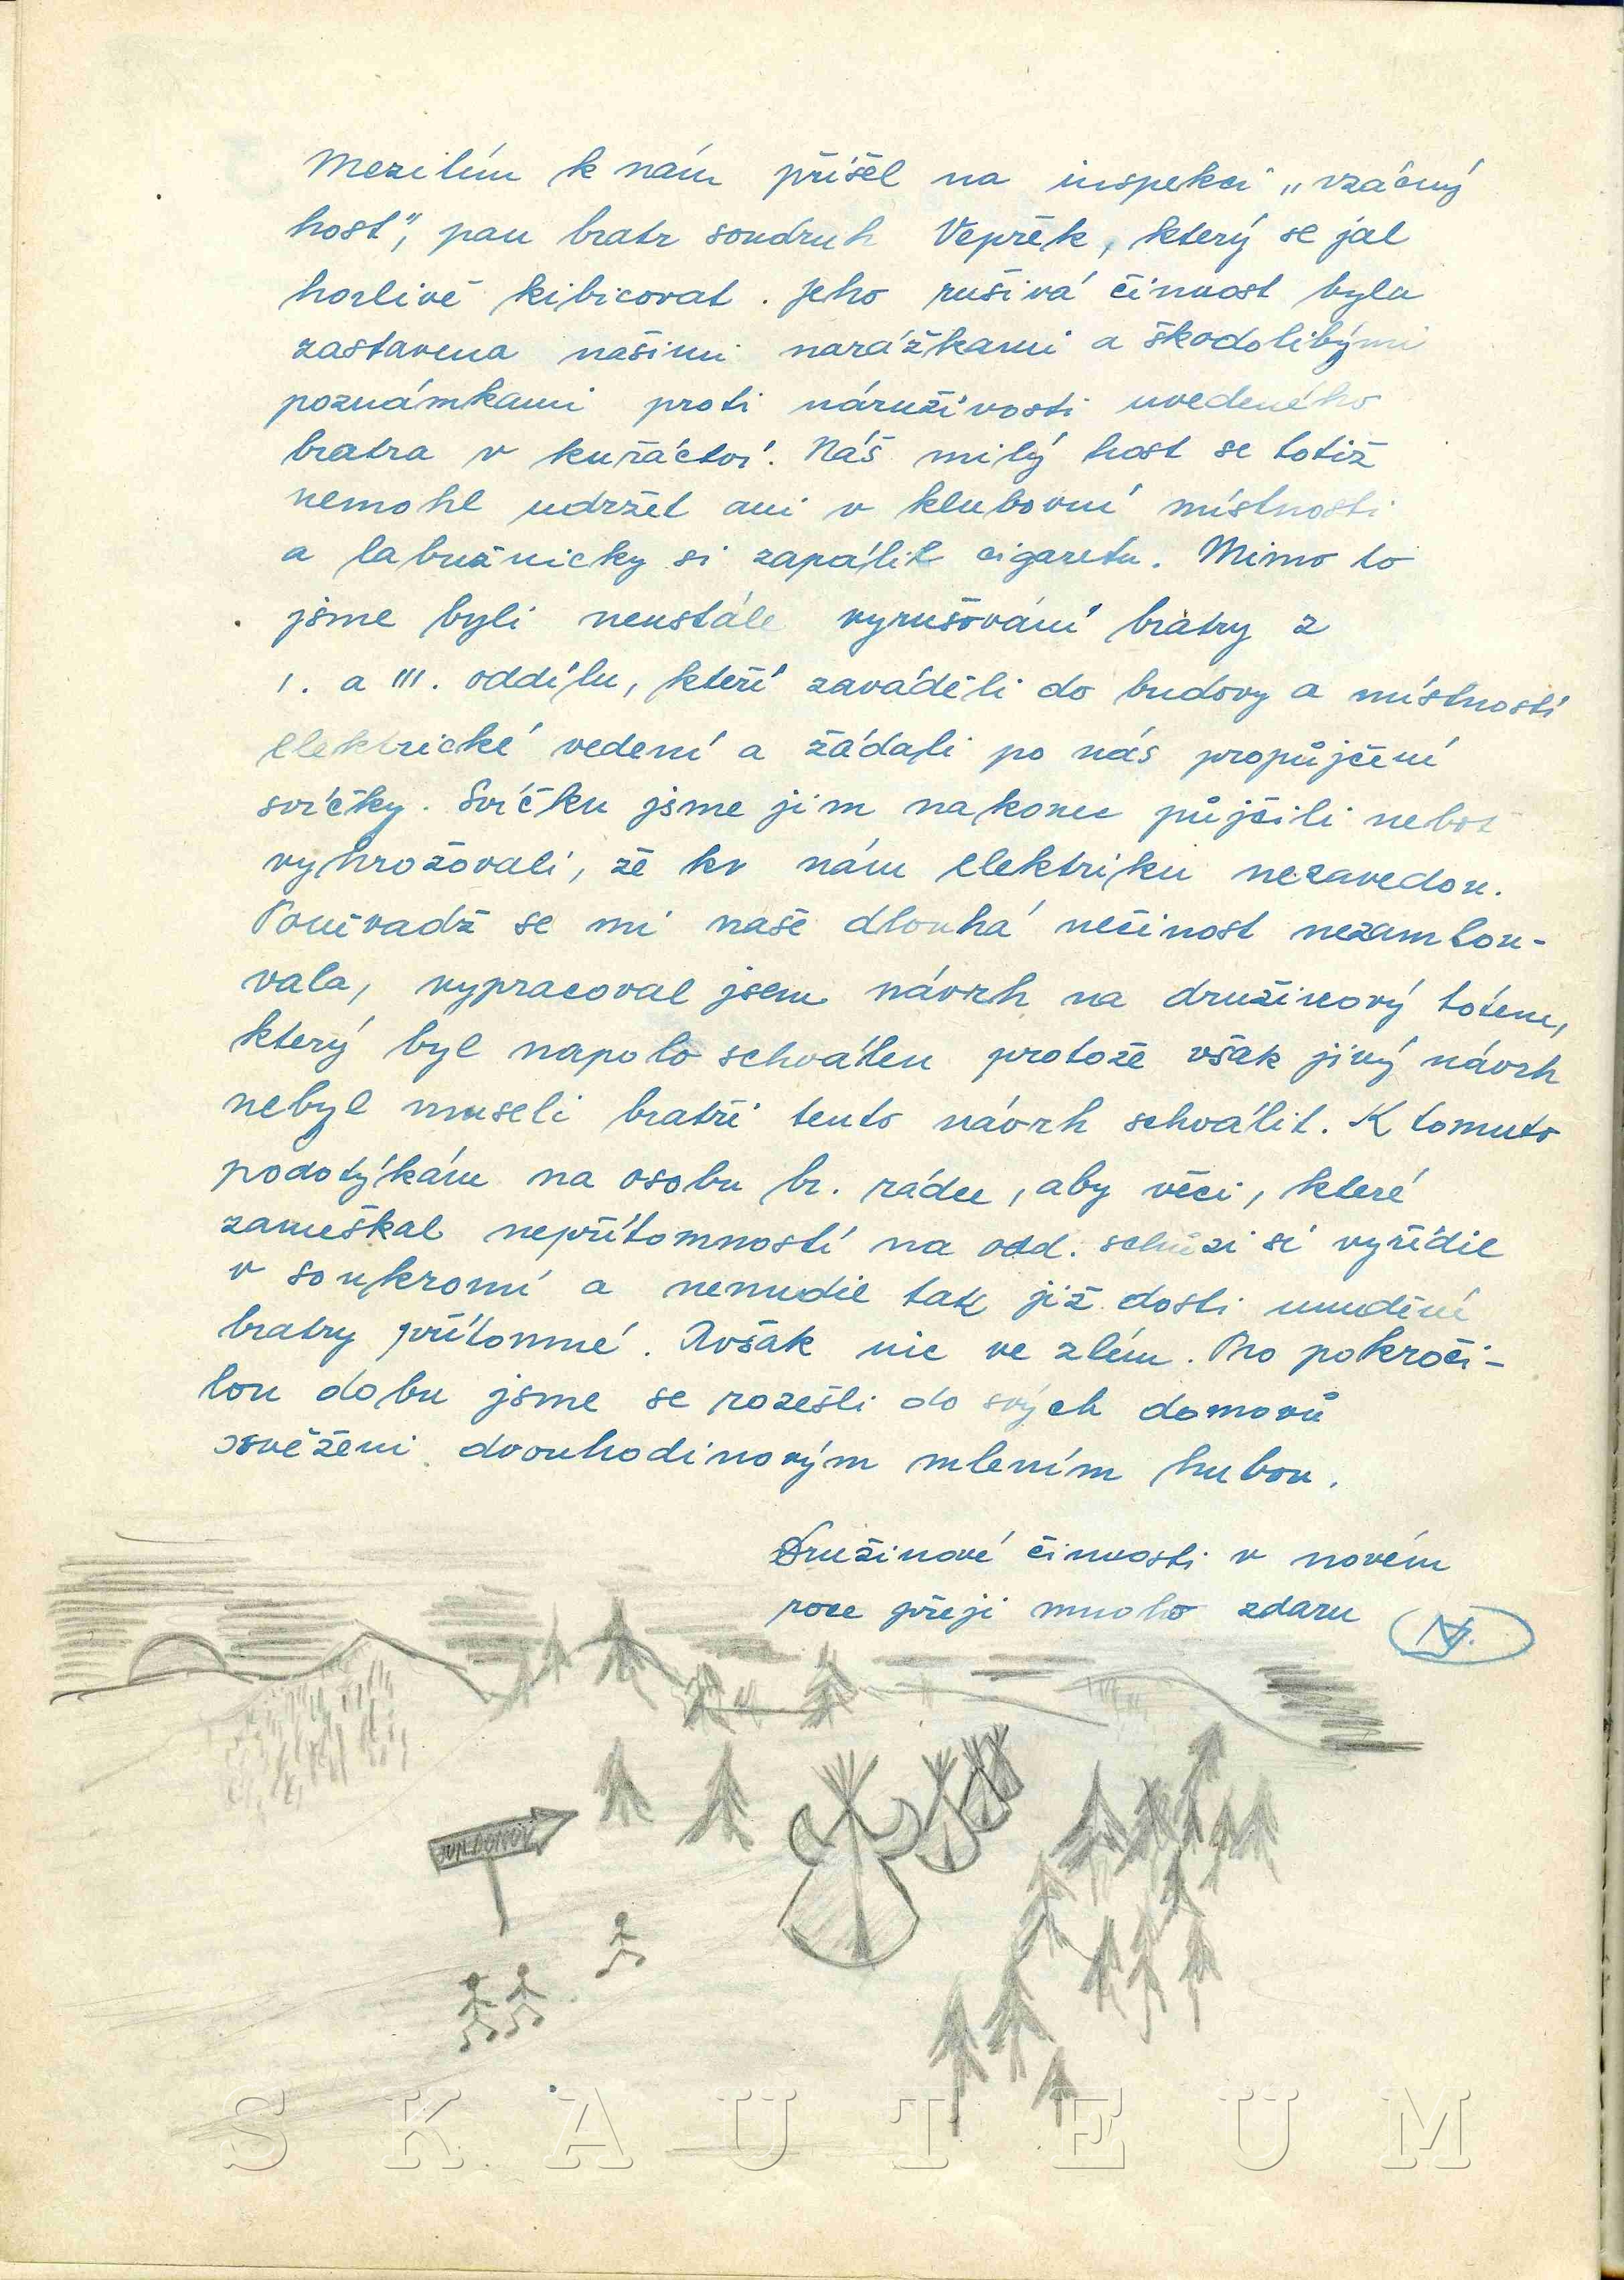 Mezitím k nám přišel na inspekci „vzácný
host", pan bratr soudruh Vepřek, který se jal
horlivě kibicovat. Jeho rušivá činnost byla
zastavena našimi narážkami a škodolibými
poznámkami proti náruživosti uvedeného
bratra v kuřáctví. Náš milý host se totiž
nemohl udržet ani v klubovní místnosti
a labužnicky si zapálil cigaretu. Mimo to
jsme byli neustále vyrušováni bratry z
I. a III. oddílu, kteří zaváděli do budovy a místností
elektrické vedení a žádali po nás propůjčení
svíčky. Svíčku jsme jim nakonec půjčili neboť
vyhrožovali, že ku nám elektriku nezavedou.
Poněvadž se mi naše dlouhá nečinost nezamlou-
vala, vypracoval jsem návrh na družinový totem,
který byl napolo schválen protože však jiný návrh
nebyl museli bratři tento návrh schválit. K tomuto
podotýkám na osobu br. rádce, aby věci, které
zameškal nepřítomností na odd. schůzi si vyřídil
v soukromí a nenudil tak již dosti unuděné
bratry přítomné. Avšak nic ve zlém. Pro pokroči-
lou dobu jsme se rozešli do svých domovů
osvěženi dvouhodinovým mlením hubou.
Družinové činnosti v novém
roce přeji mnoho zdaru
SKAUTEUM